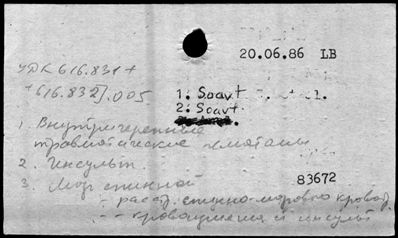 20.06.86 LB
УДК 616.831+
+616.832].005
1: Soavt
2: Soavt.
1. Внутричерепные
травматические гематомы
2. Инсульт
3. Мозг спинной
83672
- расстр. спинно-мозгово кровоо
- кровоизлияния и инсульт